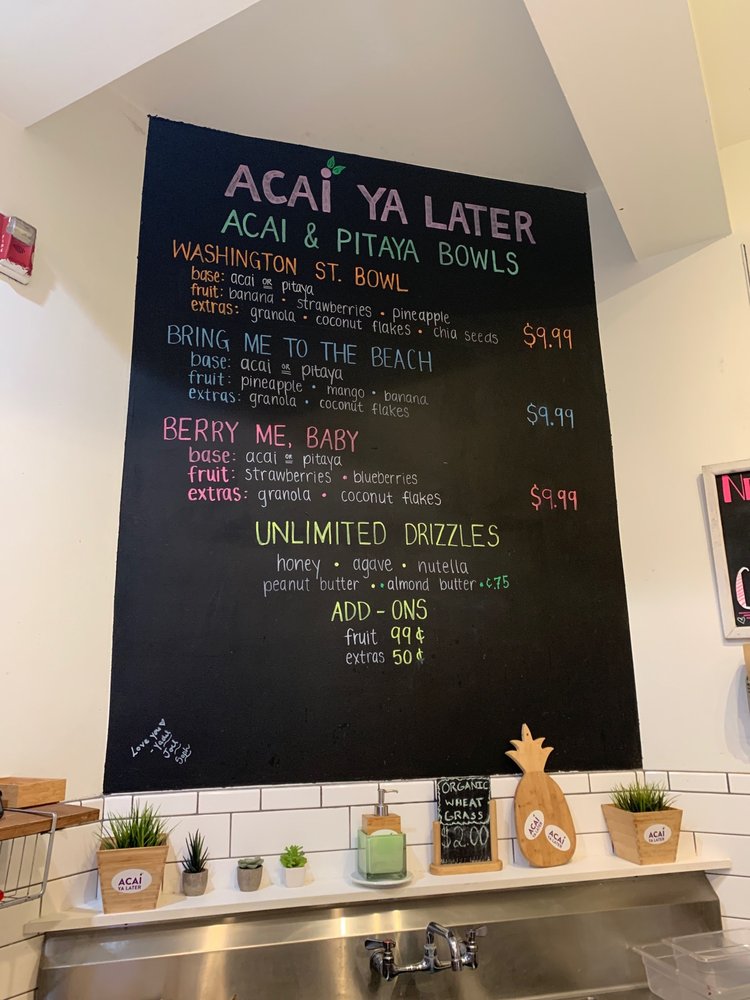 ACAI YA LATER
ACAI & PITAYA BOWLS
WASHINGTON ST. BOWL
base: acai or pitaya
fruit: banana • strawberries • pineapple
extras: granola • coconut flakes • chia seeds $9.99
BRING ME TO THE BEACH
base: acai or pitaya
fruit: pineapple • mango • banana
extras: granola • coconut flakes $9.99
BERRY ME, BABY
base: acai or pitaya
fruit: strawberries • blueberries
extras: granola • coconut flakes $9.99
UNLIMITED DRIZZLES
honey • agave • nutella
peanut butter • • almond butter • ¢.75
ADD-ONS
fruit 99¢
extras 50¢
Love you
ORGANIC
WHEAT
GRASS
$2.00
ACAÍ
YA LATER
ACAÍ
YA LATER
ACAÍ
YA LATER
ACAÍ
YA LATER